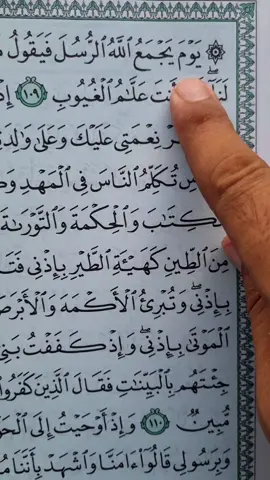 ۞ يَوۡمَ يَجۡمَعُ ٱللَّهُ ٱلرُّسُلَ فَيَقُولُ
لَنَآ عَلَّٰمُ ٱلۡغُيُوبِ ١٠٩ إِذۡ
نِعۡمَتِي عَلَيۡكَ وَعَلَىٰ
تُكَلِّمُ ٱلنَّاسَ فِي ٱلۡمَهۡدِ
ٱلۡكِتَٰبَ وَٱلۡحِكۡمَةَ وَٱلتَّوۡرَىٰةَ
مِنَ ٱلطِّينِ كَهَيۡـَٔةِ ٱلطَّيۡرِ بِإِذۡنِي
بِإِذۡنِيۖ وَتُبۡرِئُ ٱلۡأَكۡمَهَ وَٱلۡأَبۡرَصَ
ٱلۡمَوۡتَىٰ بِإِذۡنِيۖ وَإِذۡ كَفَفۡتُ بَنِيٓ
جِئۡتَهُم بِٱلۡبَيِّنَٰتِ فَقَالَ ٱلَّذِينَ كَفَرُواْ
مُّبِينٞ ١١٠ وَإِذۡ أَوۡحَيۡتُ إِلَى
وَبِرَسُولِي قَالُوٓاْ ءَامَنَّا وَٱشۡهَدۡ بِأَنَّنَا